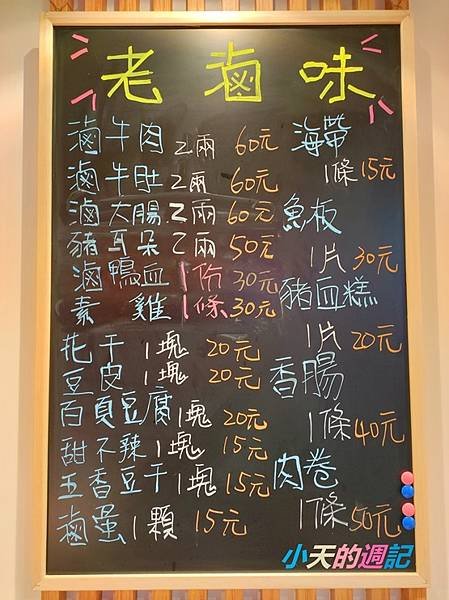 老滷味
滷牛肉 2兩 60元
滷牛肚 2兩 60元
滷大腸 2兩 60元
豬耳朵 2兩 50元
滷鴨血 1份 30元
素雞 1條 30元
花干 1塊 20元
豆皮 1塊 20元
百頁豆腐 1塊 20元
甜不辣 1塊 15元
五香豆干 1塊 15元
滷蛋 1顆 15元
海帶
1條 15元
魚板
1片 30元
豬血糕
1片 20元
香腸
1條 40元
肉卷
1條 50元
小天的週記